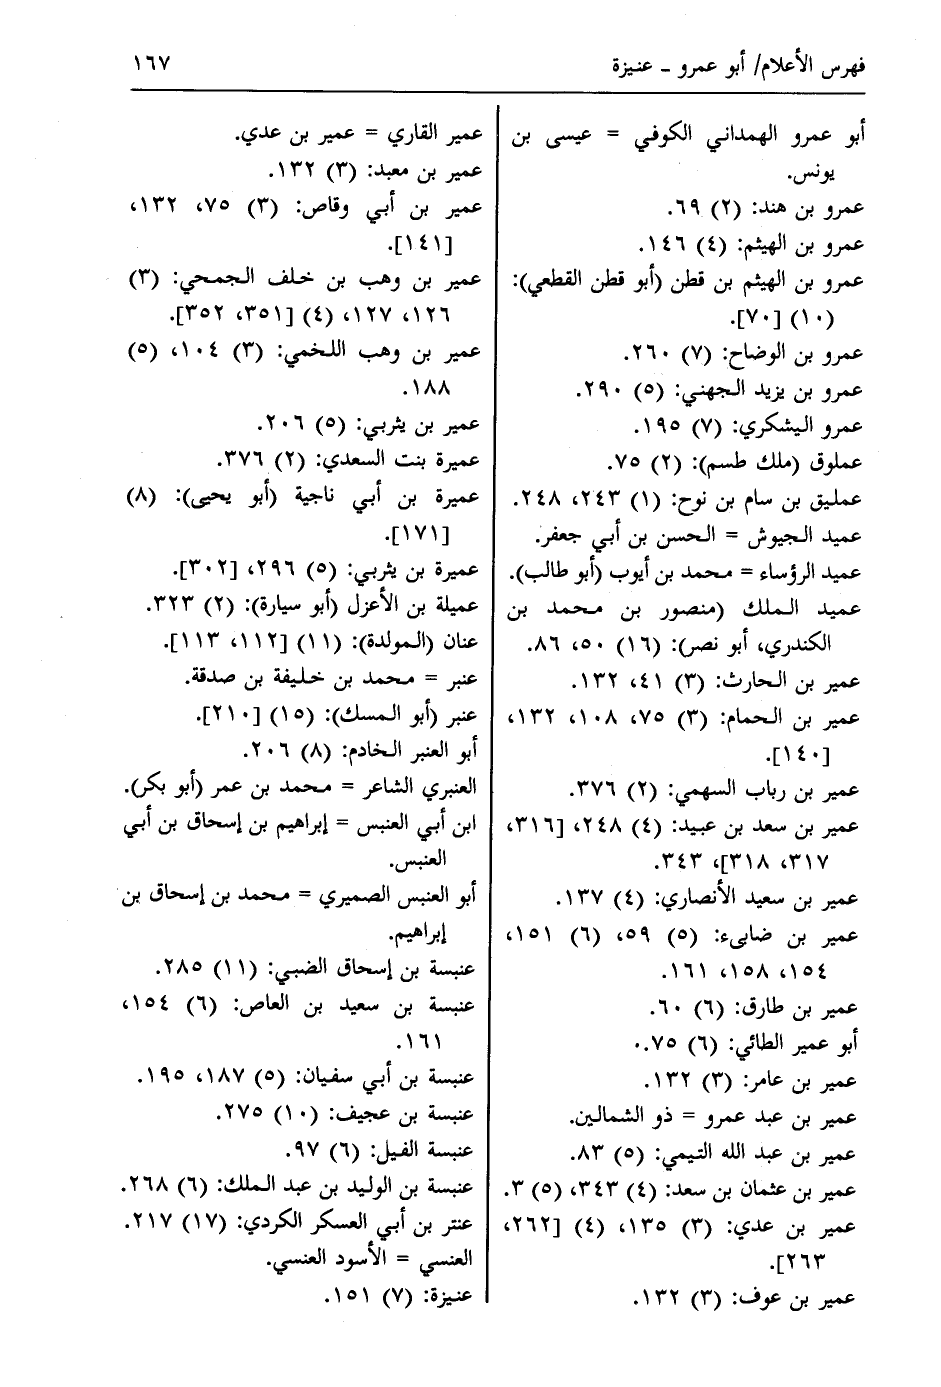 فهرس الأعلام/ أبو عمرو ـ عنيزة
١٦٧
أبو عمرو الهمداني الكوفي = عيسى بن
يونس.
عمرو بن هند: (٢) ٦٩.
عمرو بن الهيثم: (٤) ١٤٦.
عمرو بن الهيثم بن قطن (أبو قطن القطعي):
(١٠) [٧٠].
عمرو بن الوضاح: (٧) ٢٦٠.
عمرو بن يزيد الجهني: (٥) ٢٩٠.
عمرو اليشكري: (٧) ١٩٥.
عملوق (ملك طسم): (٢) ٧٥.
عمليق بن سام بن نوح: (١) ٢٤٣، ٢٤٨.
عميد الجيوش = الحسن بن أبي جعفر.
عميد الرؤساء = محمد بن أيوب (أبو طالب).
عميد الملك (منصور بن محمد بن
الكندري، أبو نصر): (١٦) ٥٠، ٨٦.
عمير بن الحارث: (٣) ٤١، ١٣٢.
عمير بن الحمام: (٣) ٧٥، ١٠٨، ١٣٢،
[١٤٠].
عمير بن رباب السهمي: (٢) ٣٧٦.
عمير بن سعد بن عبيد: (٤) ٢٤٨، [٣١٦،
٣١٧، ٣١٨]، ٣٤٣.
عمير بن سعيد الأنصاري: (٤) ١٣٧.
عمير بن ضابىء: (٥) ٥٩، (٦) ١٥١،
١٥٤، ١٥٨، ١٦١.
عمير بن طارق: (٦) ٦٠.
أبو عمير الطائي: (٦) ٧٥.٠
عمير بن عامر: (٣) ١٣٢.
عمير بن عبد عمرو = ذو الشمالين.
عمير بن عبد الله التيمي: (٥) ٨٣.
عمير بن عثمان بن سعد: (٤) ٣٤٣، (٥) ٣.
عمير بن عدي: (٣) ١٣٥، (٤) [٢٦٢،
٢٦٣].
عمير بن عوف: (٣) ١٣٢.
عمير القاري = عمير بن عدي.
عمير بن معبد: (٣) ١٣٢.
عمير بن أبي وقاص: (٣) ٧٥، ١٣٢،
[١٤١].
عمير بن وهب بن خلف الجمحي: (٣)
١٢٦، ١٢٧، (٤) [٣٥١، ٣٥٢].
عمير بن وهب اللخمي: (٣) ١٠٤، (٥)
١٨٨.
عمير بن يثربي: (٥) ٢٠٦.
عميرة بنت السعدي: (٢) ٣٧٦.
عميرة بن أبي ناجية (أبو يحيى): (٨)
[١٧١].
عميرة بن يثربي: (٥) ٢٩٦، [٣٠٢].
عميلة بن الأعزل (أبو سيارة): (٢) ٣٢٣.
عنان (المولدة): (١١) [١١٢، ١١٣].
عنبر = محمد بن خليفة بن صدقة.
عنبر (أبو المسك): (١٥) [٢١٠].
أبو العنبر الخادم: (٨) ٢٠٦.
العنبري الشاعر = محمد بن عمر (أبو بكر).
ابن أبي العنبس = إبراهيم بن إسحاق بن أبي
العنبس.
أبو العنبس الصميري = محمد بن إسحاق بن
إبراهيم.
عنبسة بن إسحاق الضبي: (١١) ٢٨٥.
عنبسة بن سعيد بن العاص: (٦) ١٥٤،
١٦١.
عنبسة بن أبي سفيان: (٥) ١٨٧، ١٩٥.
عنبسة بن عجيف: (١٠) ٢٧٥.
عنبسة الفيل: (٦) ٩٧.
عنبسة بن الوليد بن عبد الملك: (٦) ٢٦٨.
عنتر بن أبي العسكر الكردي: (١٧) ٢١٧.
العنسي = الأسود العنسي.
عنيزة: (٧) ١٥١.